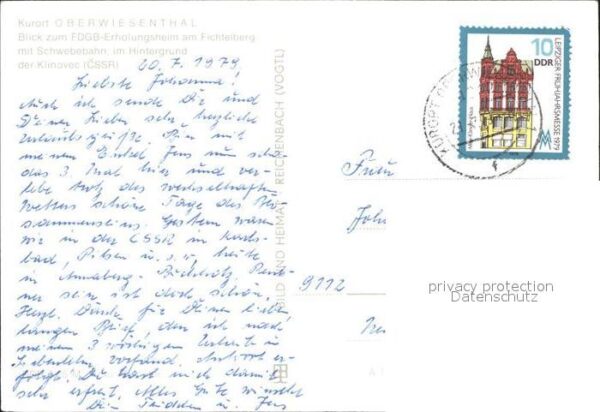 Kurort OBERWIESENTHAL
Blick zum FDGB-Erholungsheim am Fichtelberg
mit Schwebebahn; im Hintergrund
der Klinovec (ČSSR)
20. 7. 1979
Liebste Johanna!
Auch ich sende Dir und
Deinen Lieben sehr herzliche
Urlaubsgrüße. Bin mit
meinem Enkel Jens nun schon
das 3. Mal hier und ver-
lebe trotz des wechselhaften
Wetters schöne Tage des Bei-
sammenseins. Gestern waren
wir in der CSSR in Karls-
bad, Pilsen u.s.w., heute
in Annaberg-Buchholz. Rent-
ner sein ist doch schön,
Herzl. Dank für Deinen lieben
langen Brief, den ich nach
meinem 3 wöchigen Urlaub in
vorfand. Antwort er-
folgt. Du hast mich damit
sehr erfreut. Alles Gute wünscht
Dir u. Jens
BILD UND HEIMAT REICHENBACH (VOGTL)
10
DDR
LEIPZIGER FRÜHJAHRSMESSE 1979
MM
KURORT
Frau
Joh
9112
privacy protection
Datenschutz